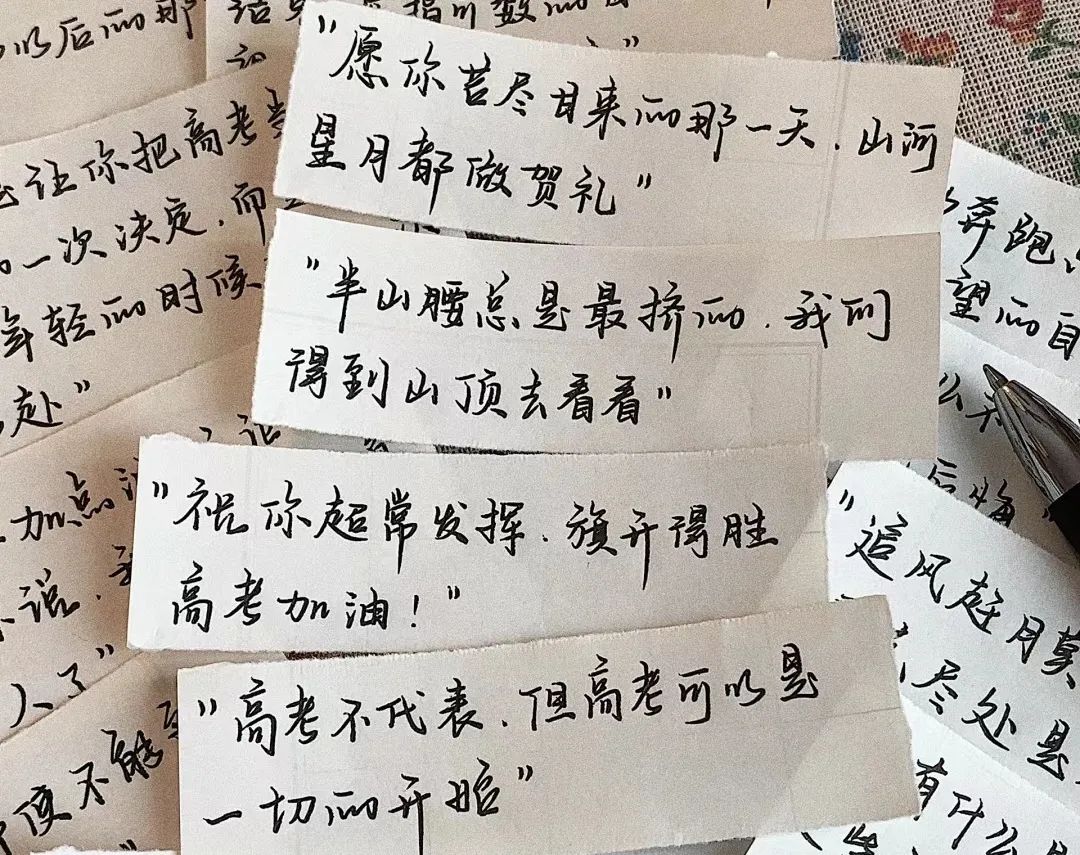 以后的那
"愿你苦尽甘来的那一天，山河
星月都做贺礼"
"半山腰总是最挤的，我们
得到山顶去看看"
"祝你超常发挥，旗开得胜
高考加油！"
"高考不代表，但高考可以是
一切的开始"
让你把高考当
一次决定，而
年轻的时候
处"
加点
小说，
人了"
便不能
奔跑，
望的自
么
后悔"
"追风赶月莫
尽处是
有什么